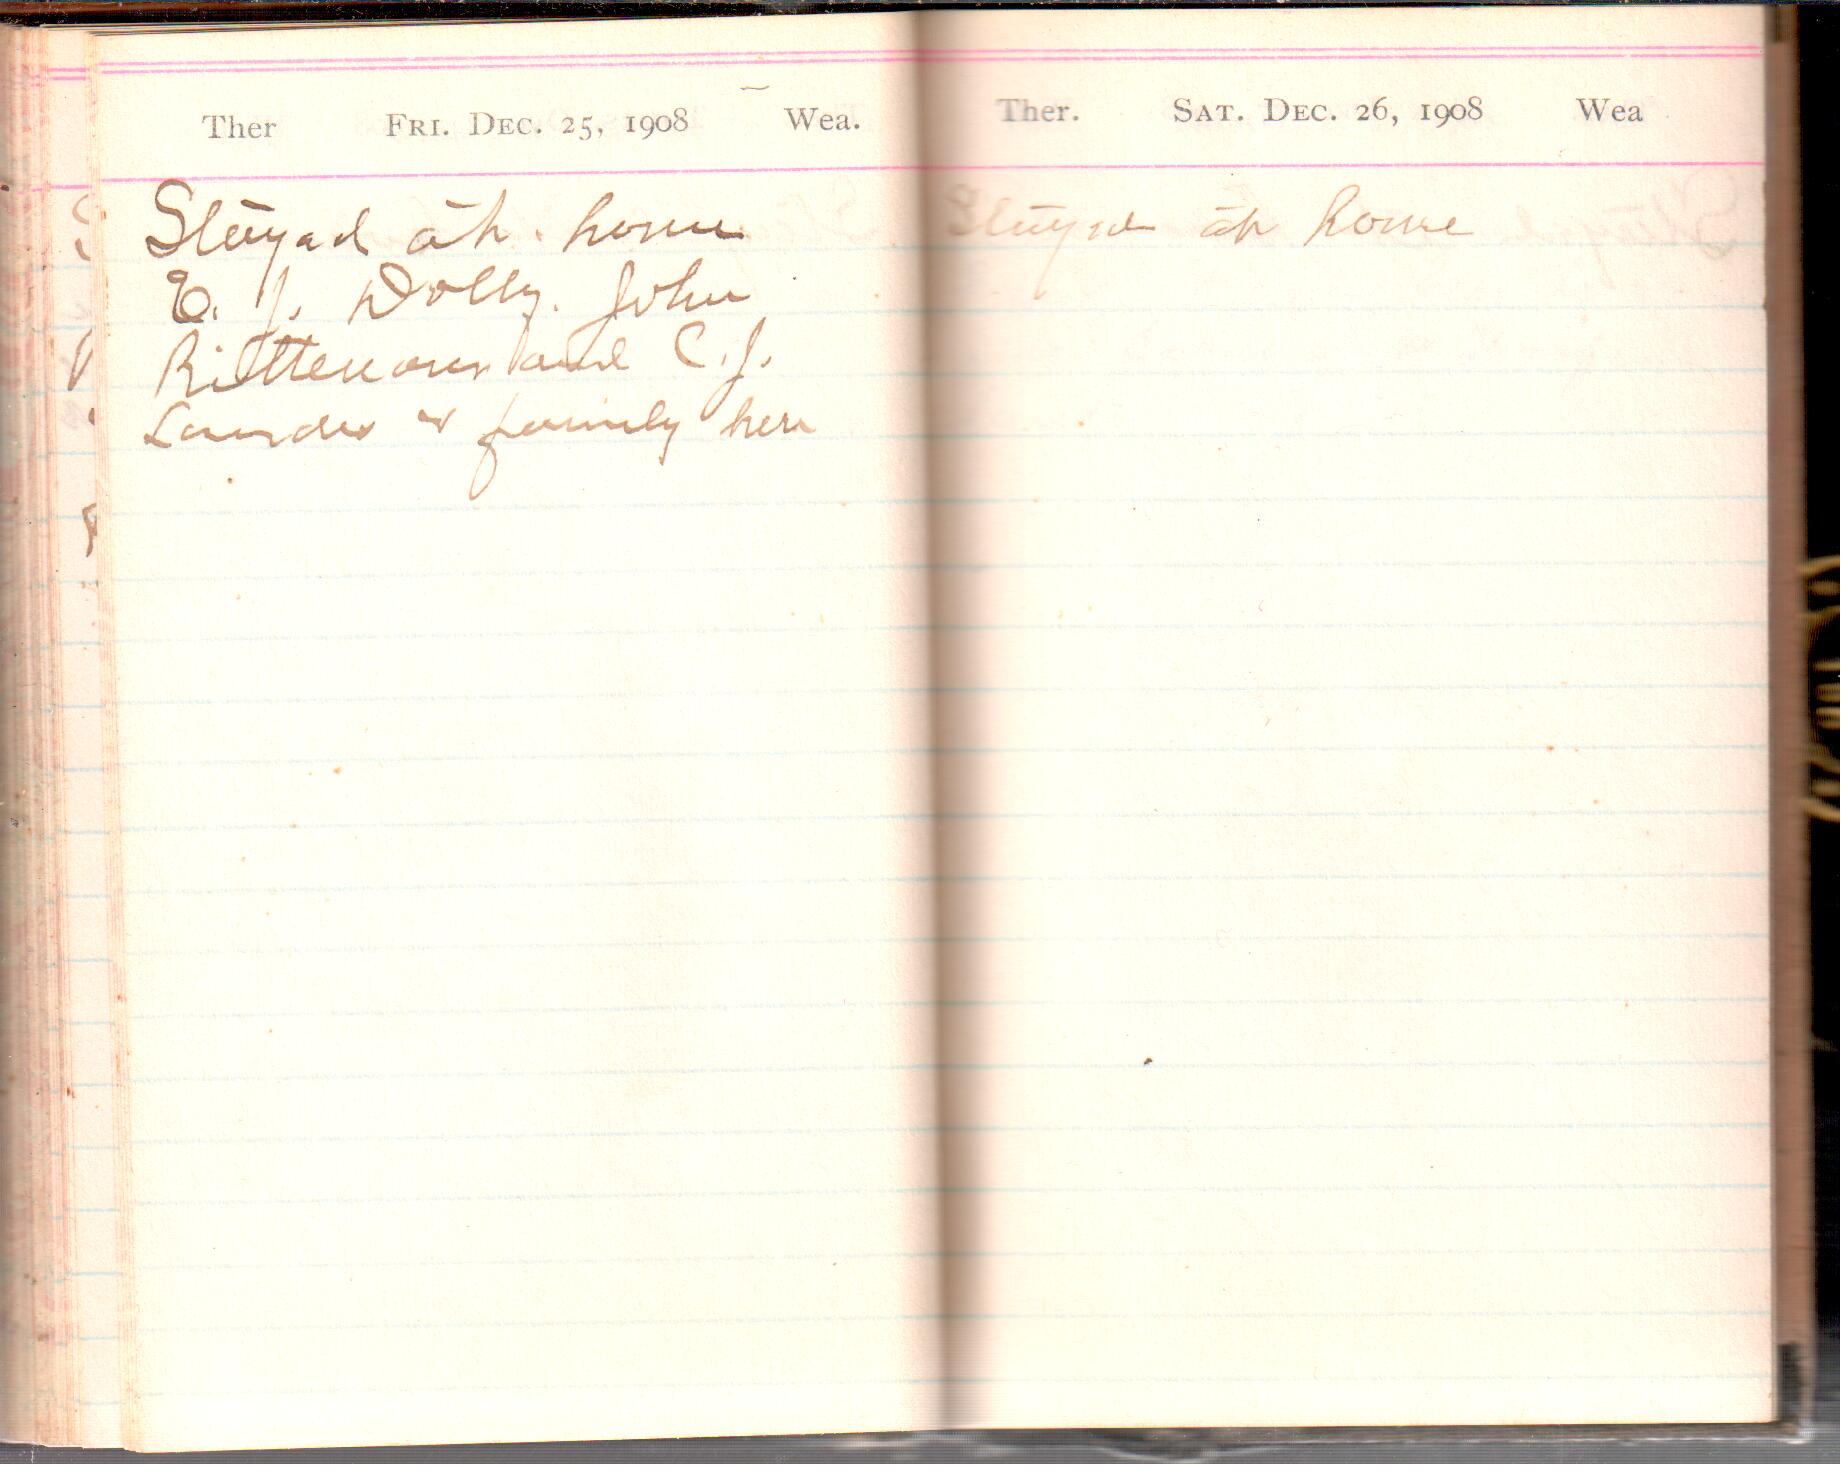 Ther Fri. Dec. 25, 1908 Wea.
Stayed at home
E. J. Dolly. John
Rittenour and C. J.
& family here
Ther. Sat. Dec. 26, 1908 Wea
Stayed at home